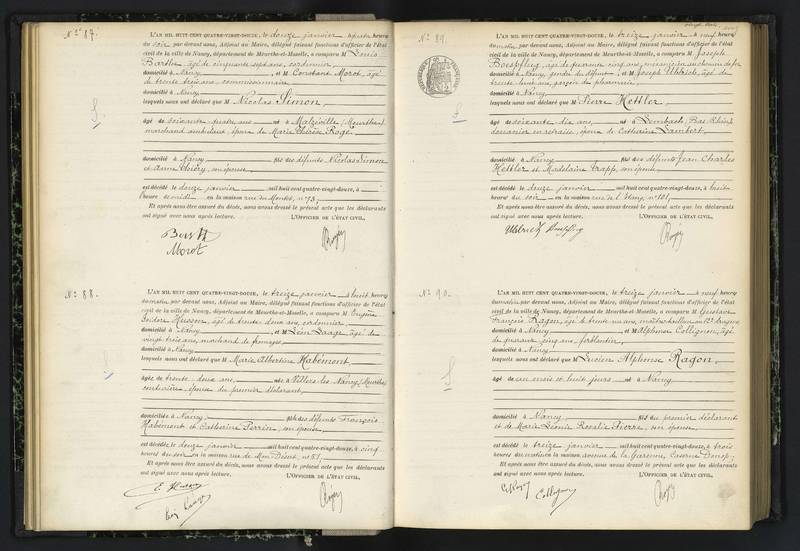 N° 87.
L'AN MIL HUIT CENT QUATRE-VINGT-DOUZE, le douze janvier à quatre heures
du soir, par devant nous, Adjoint au Maire, délégué faisant fonctions d'officier de l'état
civil de la ville de Nancy, département de Meurthe-et-Moselle, a comparu M. Louis
Barth, âgé de cinquante sept ans, cordonnier
domicilié à Nancy, et M. Constant Morot, âgé
de trente ans, commissionnaire
domicilié à Nancy
lesquels nous ont déclaré que M. Nicolas Simon,
âgé de soixante quatre ans né à Malzéville (Meurthe)
marchand ambulant, époux de Marie Thérèse Rogé
domicilié à Nancy fils des défunts Nicolas Simon
et Anne Thiéry, son épouse
est décédé le douze janvier mil huit cent quatre-vingt-douze, à
heure en la maison rue du Montet, n° 73;
Et après nous être assuré du décès, nous avons dressé le présent acte que les déclarants
ont signé avec nous après lecture. L'OFFICIER DE L'ÉTAT CIVIL,
Morot
N° 88.
L'AN MIL HUIT CENT QUATRE-VINGT-DOUZE, le treize janvier à huit heures
du matin, par devant nous, Adjoint au Maire, délégué faisant fonctions d'officier de l'état
civil de la ville de Nancy, département de Meurthe-et-Moselle, a comparu M. Eugène
Isidore Husson, âgé de trente deux ans, cordonnier
domicilié à Nancy et M. Léon Laage, âgé de
vingt trois ans, marchand de fromages
domicilié à Nancy
lesquels nous ont déclaré que M. Marie Albertine Habémont
âgée de trente deux ans née à Villers-les-Nancy (Meurthe)
couturière, épouse du premier déclarant
domicilié à Nancy fille des défunts François
Habémont et Catherine Perrin, son épouse
est décédé le douze janvier mil huit cent quatre-vingt-douze, à cinq
heures du soir en la maison rue de Mon Désert, n° 51;
Et après nous être assuré du décès, nous avons dressé le présent acte que les déclarants
ont signé avec nous après lecture. L'OFFICIER DE L'ÉTAT CIVIL,
N° 89.
L'AN MIL HUIT CENT QUATRE-VINGT-DOUZE, le treize janvier à neuf heures
du matin, par devant nous, Adjoint au Maire, délégué faisant fonctions d'officier de l'état
civil de la ville de Nancy, département de Meurthe-et-Moselle, a comparu M. Joseph
Boespflug, âgé de quarante cinq ans, mécanicien au chemin de fer
domicilié à Nancy, gendre du défunt et M. Joseph Ulrich, âgé de
trente huit ans, garçon de pharmacie
domicilié à Nancy
lesquels nous ont déclaré que M. Pierre Hettler,
âgé de soixante dix ans, né à Lembach, Bas Rhin,
douanier en retraite, époux de Catherine Lambert,
domicilié à Nancy fils des défunts Jean Charles
Hettler et Madelaine Trapp, son épouse
est décédé le douze janvier mil huit cent quatre-vingt-douze, à
heures du soir en la maison rue de l'Étang, n° 101;
Et après nous être assuré du décès, nous avons dressé le présent acte que les déclarants
ont signé avec nous après lecture. L'OFFICIER DE L'ÉTAT CIVIL,
Ulrich Boespflug
N° 90.
L'AN MIL HUIT CENT QUATRE-VINGT-DOUZE, le treize janvier à neuf heures
du matin, par devant nous, Adjoint au Maire, délégué faisant fonctions d'officier de l'état
civil de la ville de Nancy, département de Meurthe-et-Moselle, a comparu M. Gustave
François Ragon, âgé de trente un ans, maître tailleur au
domicilié à Nancy et M. Alphonse Collignon, âgé
de quarante cinq ans, ferblantier
domicilié à Nancy
lesquels nous ont déclaré que M. Lucien Alphonse Ragon
âgé de un mois et huit jours né à Nancy
domicilié à Nancy fils du premier déclarant
et de Marie Léonie Rosalie Pierre, son épouse
est décédé le treize janvier mil huit cent quatre-vingt-douze, à trois
heures du matin en la maison avenue de la Garenne, Caserne
Et après nous être assuré du décès, nous avons dressé le présent acte que les déclarants
ont signé avec nous après lecture. L'OFFICIER DE L'ÉTAT CIVIL,
Collignon